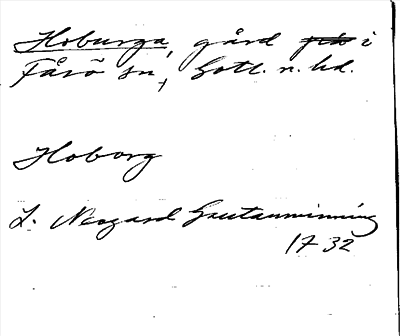 Hoburga, gård på i
Fårö sn, Gotl. n. hd.
Hoborg
L. Neogard Gautauminning
1732